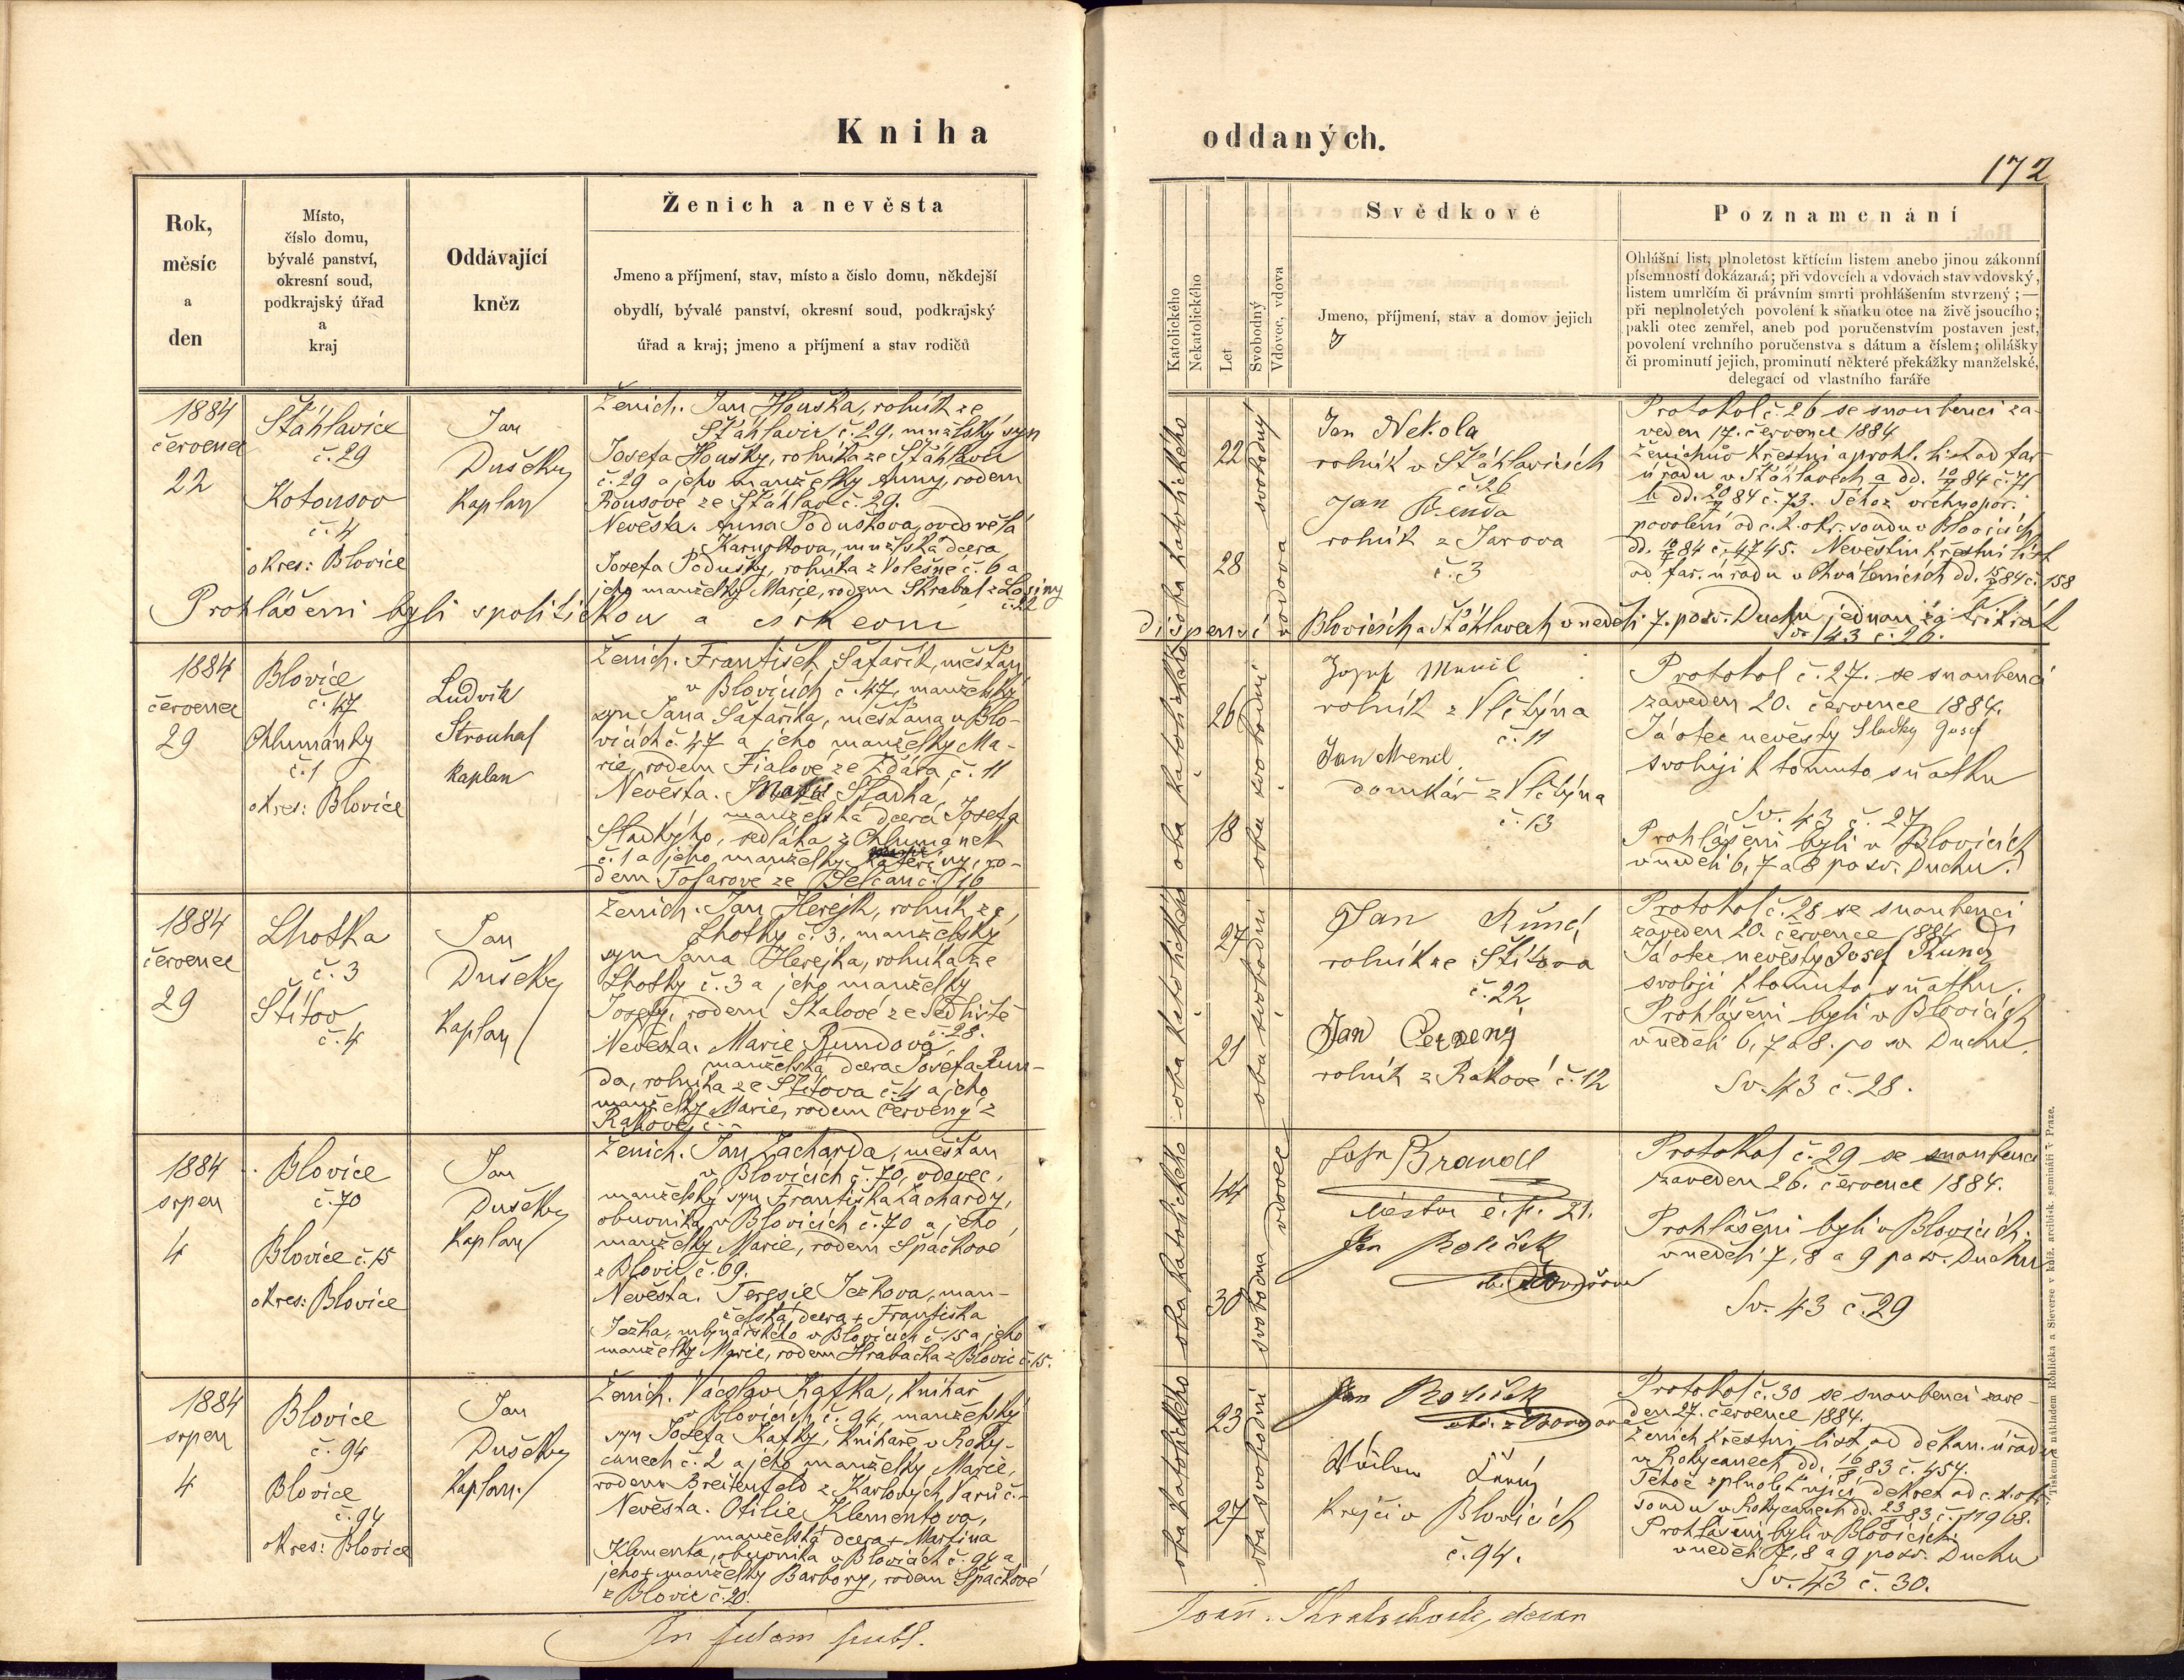 Kniha
oddaných.
172
Rok,
měsíc
a
den
Místo,
číslo domu,
bývalé panství,
okresní soud,
podkrajský úřad
a
kraj
Oddávající
kněz
Ženich a nevěsta
Jmeno a příjmení, stav, místo a číslo domu, někdejší
obydlí, bývalé panství, okresní soud, podkrajský
úřad a kraj; jmeno a příjmení a stav rodičů
Katolického
Nekatolického
Let
Svobodný
Vdovec, vdova
Svědkové
Jmeno, příjmení, stav a domov jejich
Poznamenání
Ohlášní list, plnoletost křtícím listem anebo jinou zákonní
písemností dokázaná; při vdovcích a vdovách stav vdovský,
listem umrlčím či právním smrti prohlášením stvrzený; —
při neplnoletých povolení k sňatku otce na živě jsoucího;
pakli otec zemřel, aneb pod poručenstvím postaven jest,
povolení vrchního poručenstva s dátum a číslem; ohlášky
či prominutí jejich, prominutí některé překážky manželské,
delegací od vlastního faráře
1884
červenec
22
Šťáhlavice
č. 29
Kotousov
č. 4
okres: Blovice
Jan
Dušek
Kaplan
Ženich. Jan Houška, rolník ze
Šťáhlavic č. 29, mnžlský syn
Josefa Houšky, rolníka ze Šťáhlavic
č. 29 a jeho manželky Anny, rodem
Rousové ze Šťáhlav č. 29.
Nevěsta. Anna Poduškova, ovdovělá
mnžlská dcera
Josefa Podušky, rolníka z Volešné č. 6 a
jeho manželky Marie, rodem Škrabal z Losiny
č. 22
Prohlášeni byli s politickou a církevní
dispensí
oba katolického
22
28
svobodný
vdova
Jan Nekola
rolník v Šťáhlavicích
č. 26
Jan Benda
rolník z Jarova
č. 3
Protokol č. 26 se snoubenci za-
veden 17. července 1884
Ženichův křestní a prohl. list od far.
úřadu v Šťáhlavech a dd. 84 č. 71
b dd. 84 č. 73. Téhož vrchnopor.
povolení od c. k. okr. soudu v Blovicích
dd. 84 č. 4745. Nevěstin křestní list
od far. úřadu v Chválenicích dd. 84 č. 158
Blovicích a Šťáhlavech v neděli 7. po sv. Duchu jednou za třikrát
Sv. 43 č. 26.
1884
červenec
29
Blovice
č. 47
Chlumánky
č. 1
okres: Blovice
Ludvík
Strouhal
kaplan
Ženich. František Šafařík, měšťan
v Blovicích č. 47, manželský
syn Jana Šafaříka, měšťana v Blo-
vicích č. 47 a jeho manželky Ma-
rie, rodem Fialové ze Žďára č. 11
Nevěsta. Marie Sladká,
manželská dcera Josefa
Sladkýho, sedláka z Chlumánek
č. 1 a jeho manželky Kateřiny, ro-
dem Tolarové ze Želčan č. 16
oba katolického
26
18
oba svobodní
Josef Mencl
rolník z Vlčtýna
č. 11
Jan Mencl
domkář z Vlčtýna
č. 13
Protokol č. 27. se snoubenci
zaveden 20. července 1884.
Já otec nevěsty Sladký Josef
svoluji k tomuto sňatku
Sv. 43 č. 27
Prohlášeni byli v Blovicích
v neděli 6, 7 a 8 po sv. Duchu.
1884
červenec
29
Lhotka
č. 3
Štítov
č. 4
Jan
Dušek
Kaplan
Ženich. Jan Herejk, rolník ze
Lhotky č. 3, manželský
syn Jana Herejka, rolníka ze
Lhotky č. 3 a jeho manželky
Josefy, rodem Skalové ze Sedliště
č. 28.
Nevěsta. Marie Rundová
manželská dcera Josefa Run-
da, rolníka ze Štítova č. 4 a jeho
manželky Marie, rodem Červený z
Rakové č. –
oba katolického
27
21
oba svobodní
Jan Rund
rolník ze Štítova
č. 22
Jan Červený
rolník z Rakové č. 12
Protokol č. 28 se snoubenci
zaveden 20. července 1884
Já otec nevěsty Josef Rund
svoluji k tomuto sňatku.
Prohlášeni byli v Blovicích
v neděli 6, 7 a 8. po sv. Duchu.
Sv. 43 č. 28.
1884
srpen
4
Blovice
č. 70
Blovice č. 15
okres: Blovice
Jan
Dušek
Kaplan
Ženich. Jan Zacharda, měšťan
v Blovicích č. 70, vdovec,
manželský syn Františka Zachardy,
obuvníka v Blovicích č. 70 a jeho
manželky Marie, rodem Špačkové
z Blovic č. 69.
Nevěsta. Teresie Ježkova, man-
želská dcera + Františka
Ježka, mlynářského v Blovicích č. 15 a jeho
manželky Marie, rodem Hrabačka z Blovic č. 15.
oba katolického
44
30
vdovec
svobodna
Josef Brandl
č. p. 21.
Jan Rotiček
Protokol č. 29 se snoubenci
zaveden 26. července 1884.
Prohlášeni byli v Blovicích
v neděli 7, 8 a 9 po sv. Duchu
Sv. 43 č. 29
1884
srpen
4
Blovice
č. 94
Blovice
č. 94
okres: Blovice
Jan
Dušek
Kaplan
Ženich. Václav Kafka, knihař
v Blovicích č. 94, manželský
syn Josefa Kafky, knihaře v Roky-
canech č. 2 a jeho manželky Marie,
rodem Breitenfeld z Karlových Varů č. –
Nevěsta. Otilie Klementova,
manželská dcera + Martina
Klementa, obuvníka v Blovicích č. 94 a
jeho + manželky Barbory, rodem Špačkové
z Blovic č. 20.
oba katolického
23
27
oba svobodní
Jan Rotiček
Václav Černý
krejčí v Blovicích
č. 94.
Protokol č. 30 se snoubenci zave-
den 27. července 1884.
Ženich křestní list od děkan. úřadu
v Rokycanech dd. 16/8 83 č. 454.
Téhož zplnoletňující dekret od c. k. okr.
soudu v Rokycanech dd. 83 č. 11968.
Prohlášeni byli v Blovicích
v neděli 7, 8 a 9 po sv. Duchu
Sv. 43 č. 30.
Tiskem a nákladem Rohlíčka a Sieverse v kníž. arcibisk. semináři v Praze.